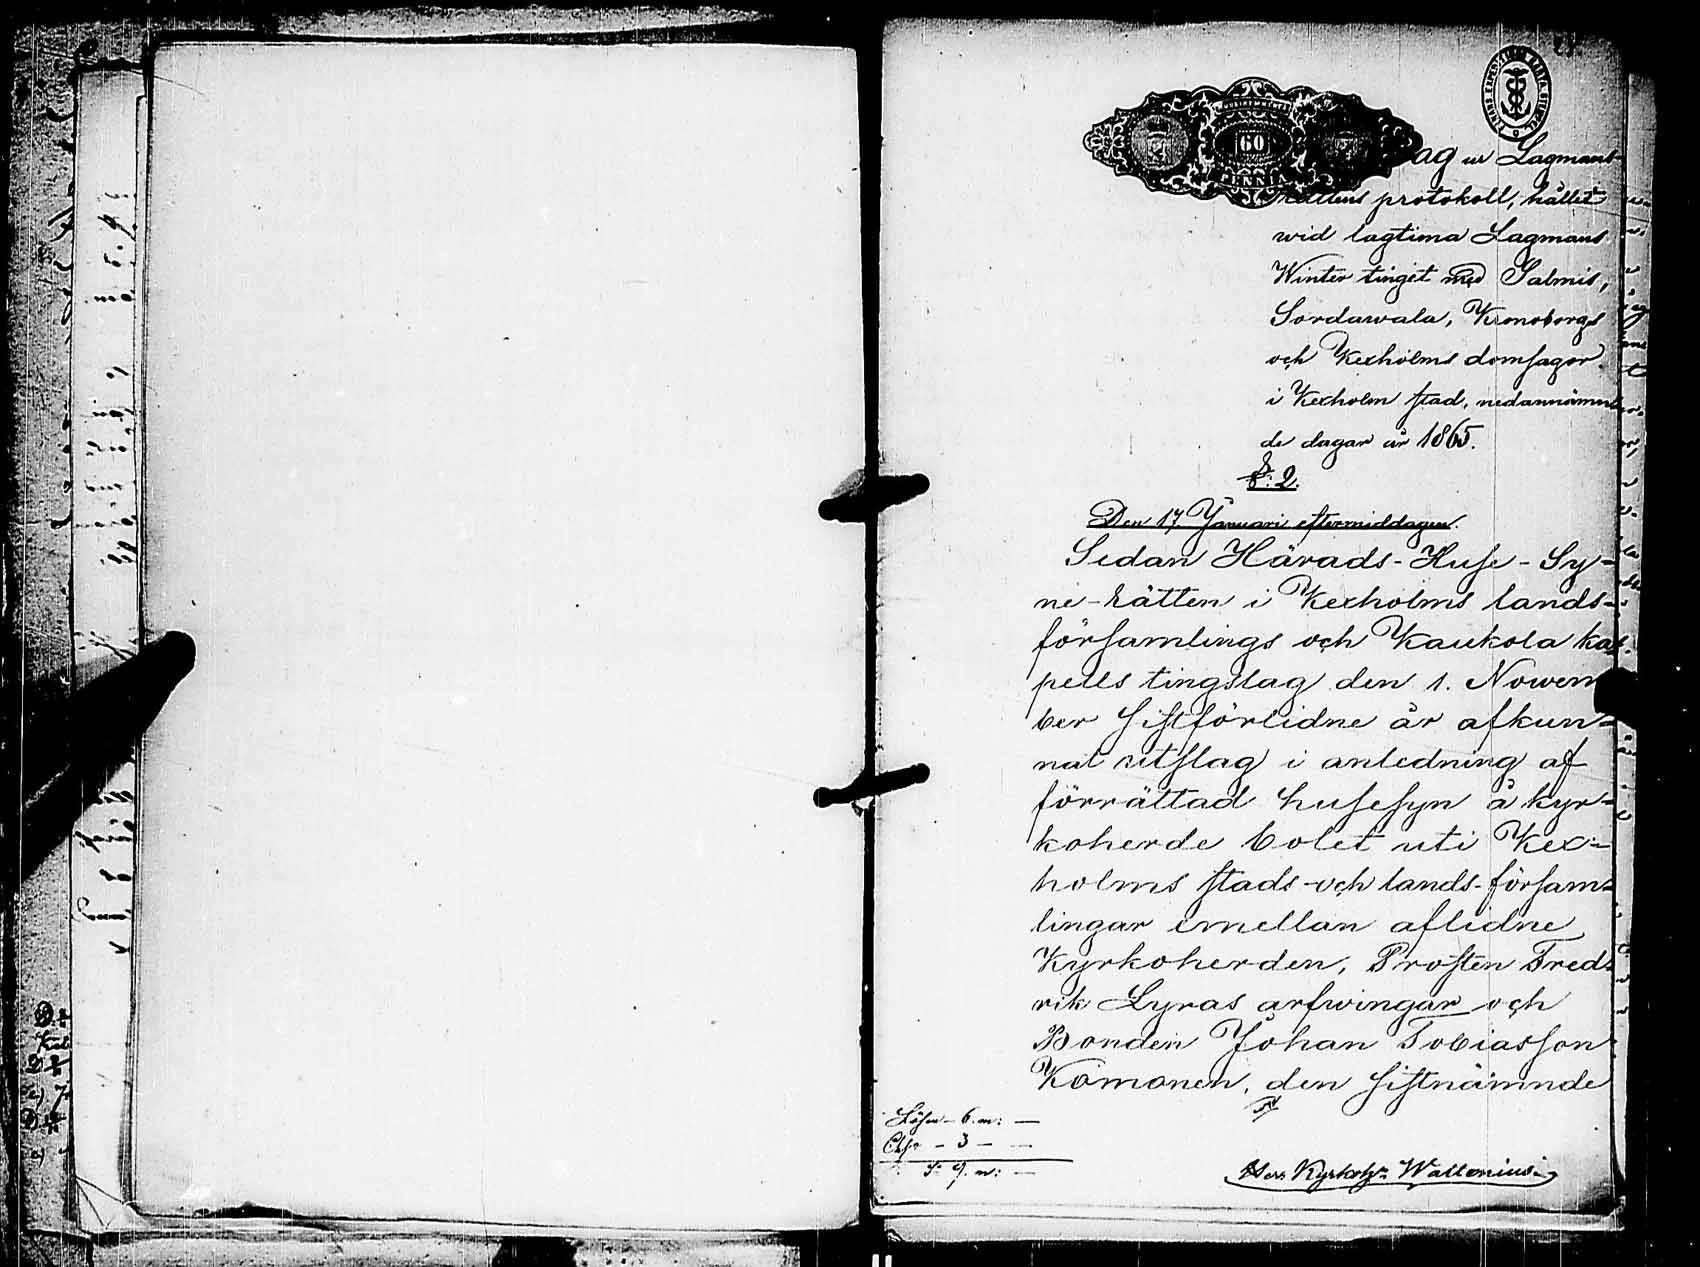 60
PENNIÄ
ur Lagmans-
Rättens protokoll, hållet
wid lagtima Lagmans
Winter tinget med Salmis,
Sordawala, Kronoborgs
och Kexholms domsagor
i Kexholm stad, nedannämn-
de dagar år 1865.
§: 2.
Den 17 Januari eftermiddagen.
Sedan Härads-Huse-Sy-
ne-Rätten i Kexholms lands-
församlings och Kaukola ka-
pells tingslag den 1. Novem
ber sistförlidne år afkun-
nat utslag i anledning af
förrättad husesyn å kyr-
koherde bolet uti Kex-
holms stads-och lands-försam-
lingar emellan aflidne
Kyrkoherden, Prosten Fred-
rik Lyras arfwingar och
Bonden Johan Tobiasson
Komonen, den sistnämnde
Lösen - 6. m: —
- 3 - —
S: 9. m: —
Herr Kyrkoh: Wallenius.